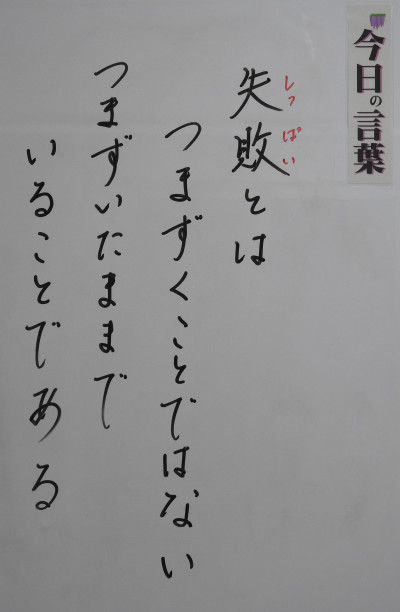 今日の言葉
失敗とは
しっぱい
つまずくことではない
つまずいたままで
いることである